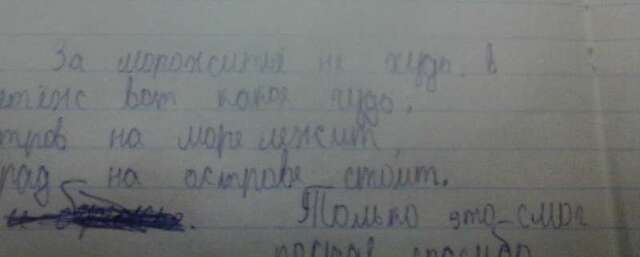 За морожития не худо. в
етёж вот какое чудо.
тров на море лежит,
рад на острове стоит.
Только это смог